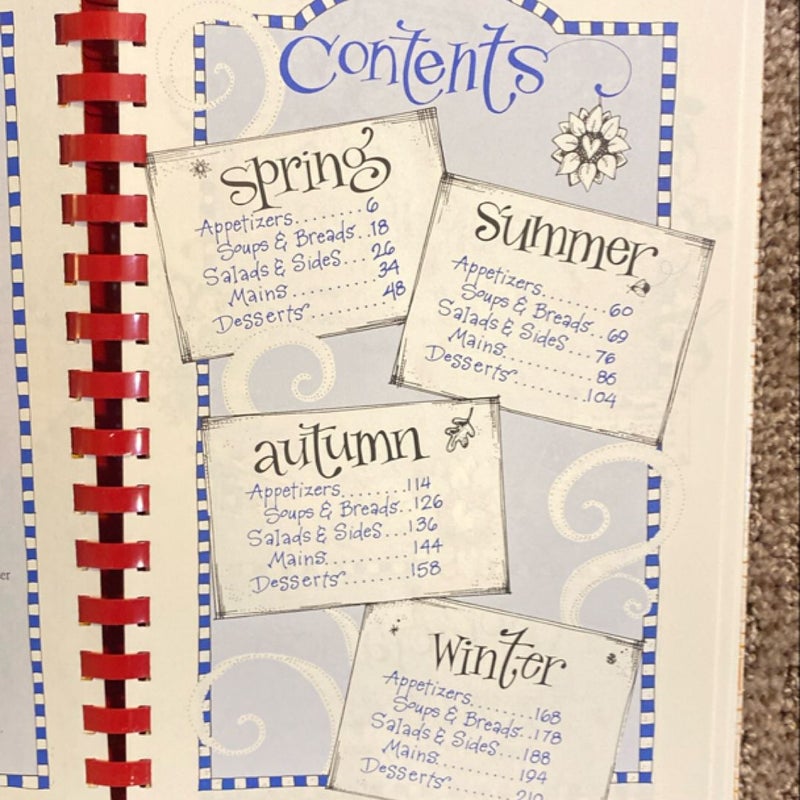 Contents
spring
Appetizers........6
Soups & Breads..18
Salads & Sides...26
Mains............34
Desserts.........48
summer
Appetizers........60
Soups & Breads..69
Salads & Sides...76
Mains............86
Desserts.........104
autumn
Appetizers.......114
Soups & Breads..126
Salads & Sides...136
Mains...........144
Desserts........158
winter
Appetizers........168
Soups & Breads..178
Salads & Sides...188
Mains...........194
Desserts........210
er